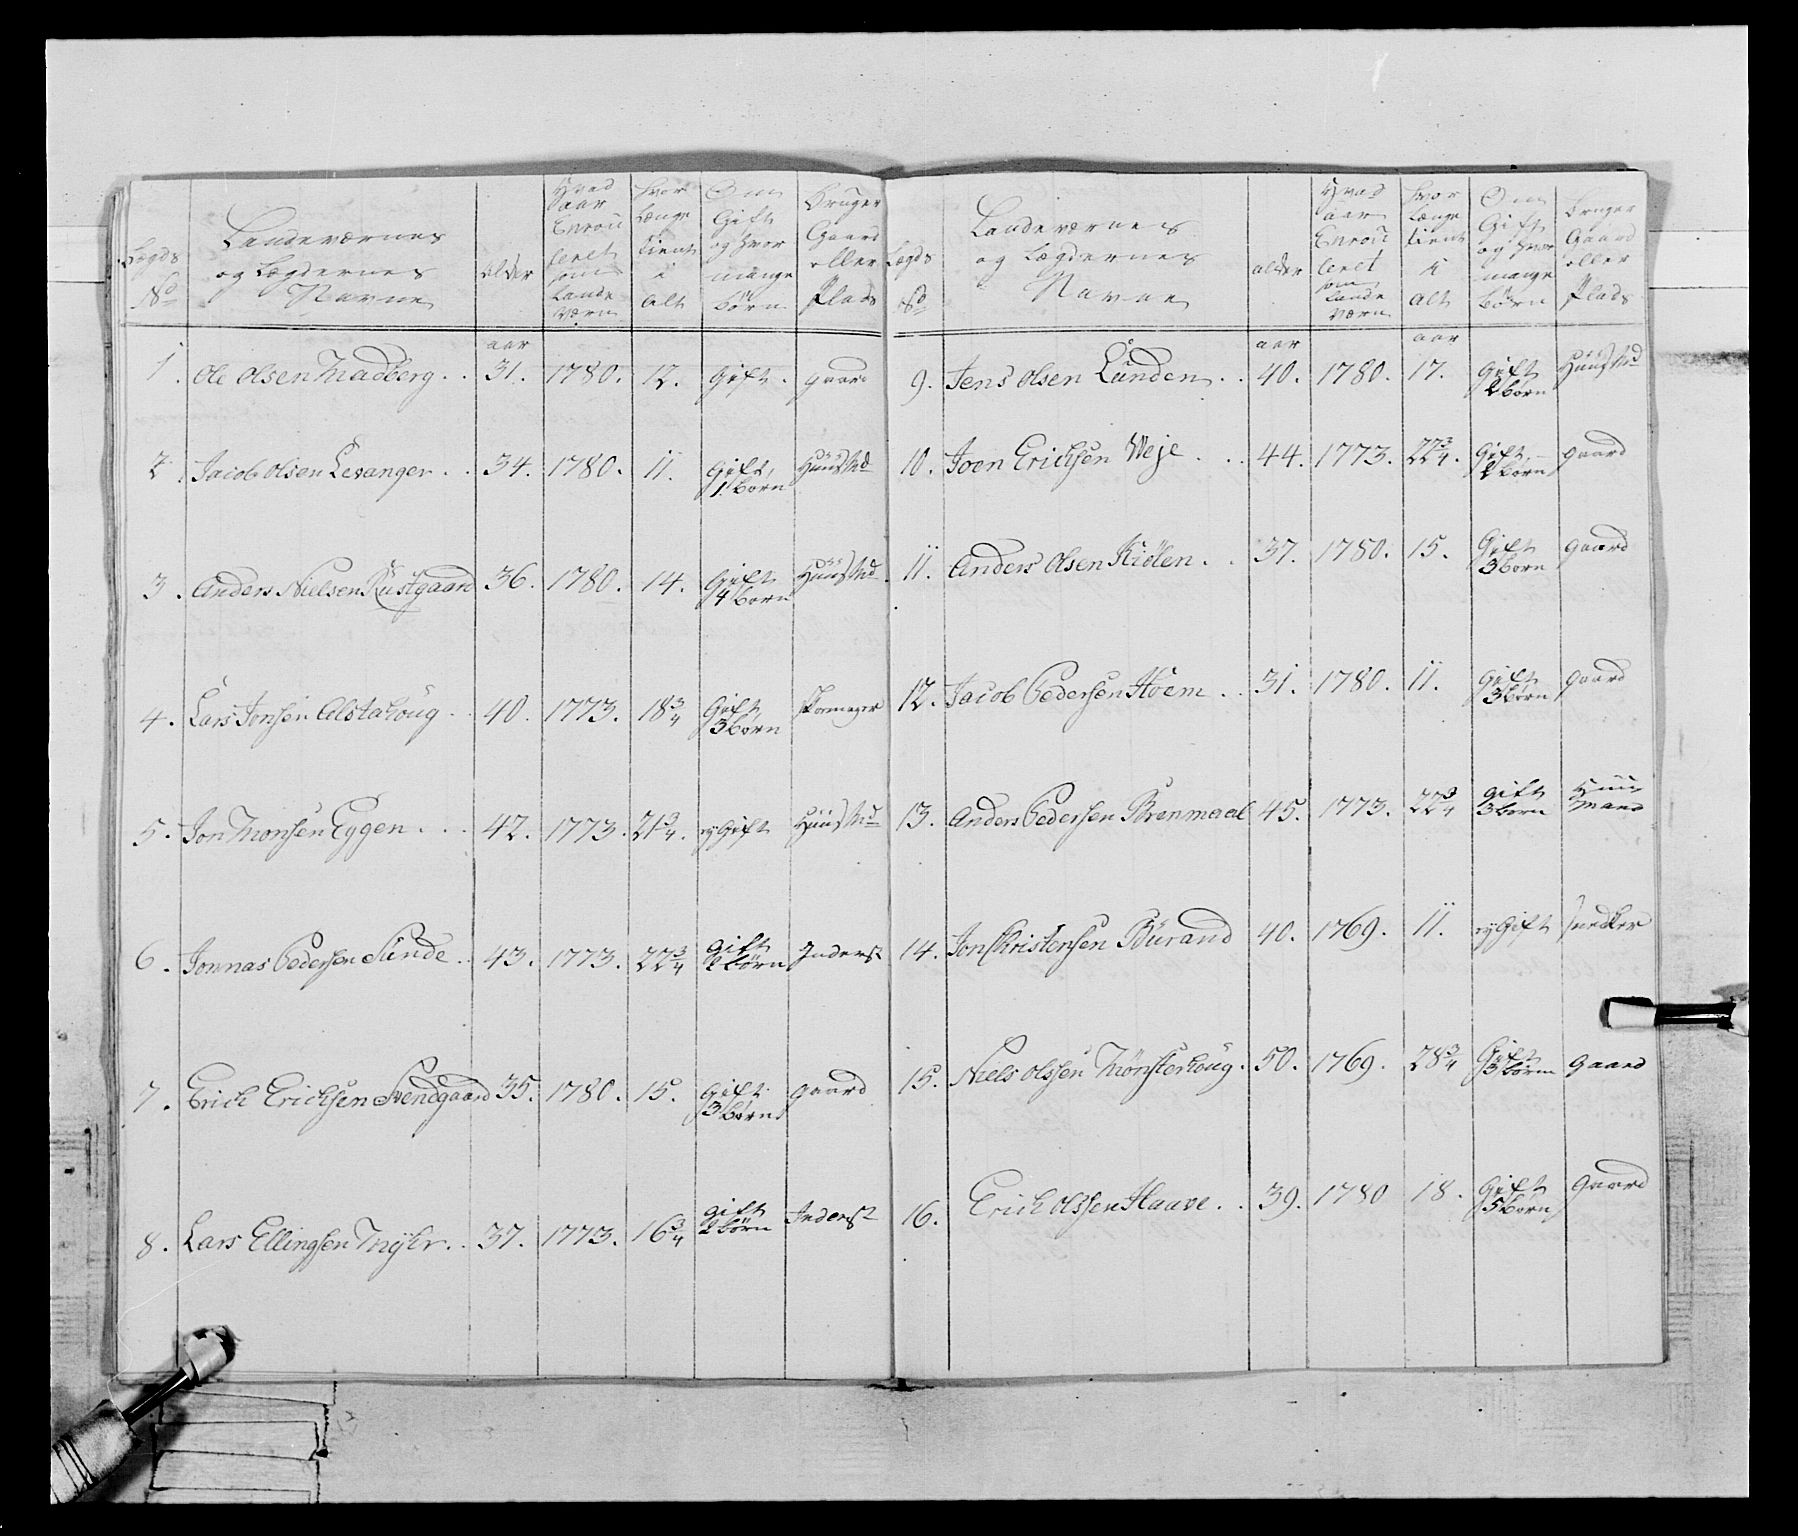 Lægds No | Landeværnes og Lægdernes Navne | Alder | Hvad Aar Enroulleret som Lande Værn | Hvor Længe tient i alt | Om Gift og hvor mange børn | Bruger Gaard eller Plads
aar
1. Ole Olsen Madberg . . 31. 1780. 12. Gift. gaard
2. Jacob Olsen Levanger . . 34. 1780. 11. Gift, 1 born Huusmd
3. Anders Nielsen Rustgaard 36. 1780. 14. Gift 4 born Huusmd
4. Lars Jonsen Alstahoug . . 40. 1773. 18 3/4 Gift 3 born skomager
5. Jon Thomsen Eggen . . . 42. 1773. 21 3/4. ugift Huusmd
6. Jonnas Pedersen Sunde . . 43. 1773. 22 3/4 Gift 2 børn Inderst
7. Erich Erichsen Svendgaard 35. 1780. 15. Gift 3 børn gaard
8. Lars Ellingsen Myhr . . 37. 1773. 16 3/4 gift 2 børn Inderst
Lægds No | Landeværnes og Lægdernes Navne | alder | Hvad aar Enroulleret som Lande Værn | hvor Længe tient i alt | Om Gift og hvor mange børn | Bruger Gaard eller Plads
aar aar
9. Jens Olsen Lunden . . 40. 1780. 17. Gift 2 børn Huusmd
10. Joen Erichsen Weje . . . 44. 1773. 22 3/4. Gift 2 born gaard
11. Anders Olsen Kiølen . . 37. 1780. 15. Gift 3 born gaard
12. Jacob Pedersen Hoem . . 31. 1780. 11. Gift 3 børn gaard
13. Anders Pedersen Brenmaal 45. 1773. 22 3/4 gift 3 born Huusmand
14. Jon Christensen Burand 40. 1769. 11. ugift snedker
15. Niels Olssen Mønsterhoug. 50. 1769. 28 3/4 Gift 3 børn gaard
16. Erich Olssen Haave . . 39. 1780 18. Gift 5 børn Gaard